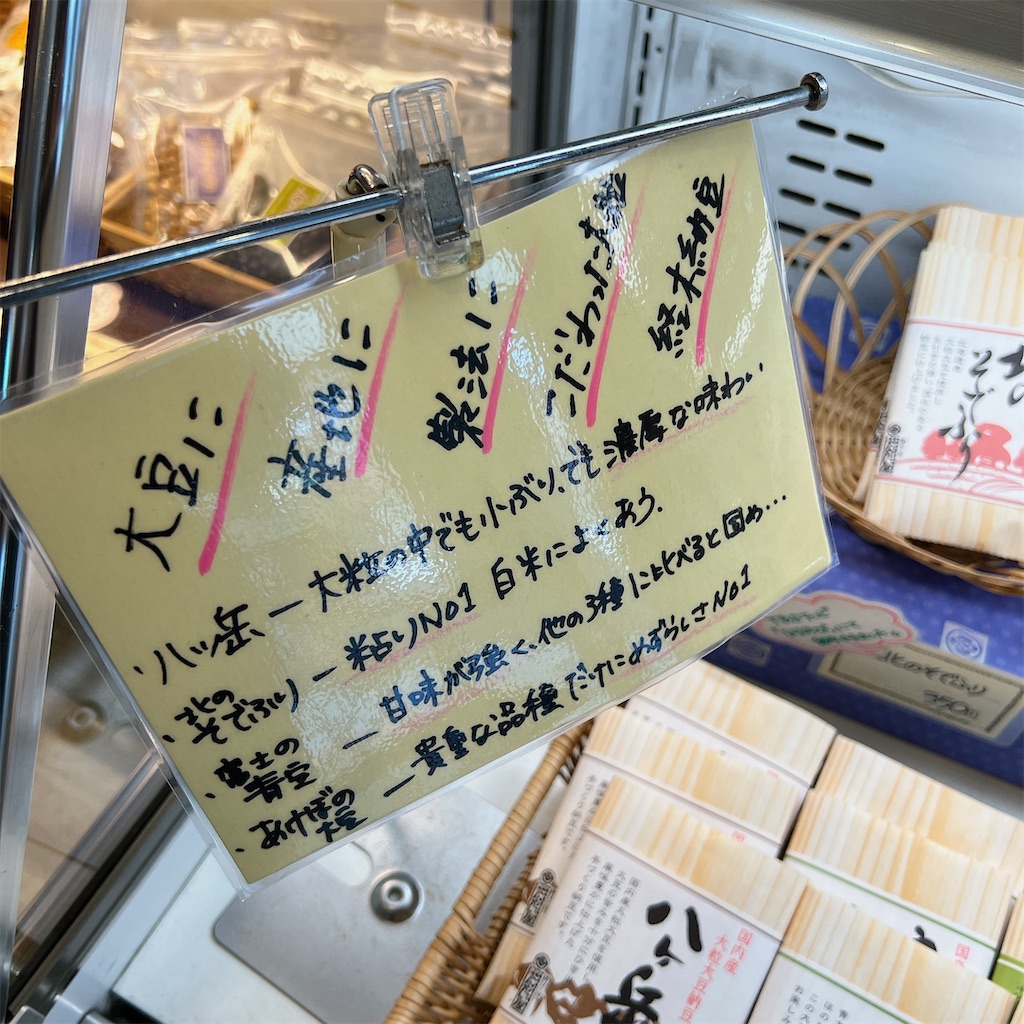 大豆に
産地に
製法に
こだわった大粒
経木納豆
・八ヶ岳 ー 大粒の中でも小ぶり、でも濃厚な味わい
・北のそでふり ー 粘りNo1 白米によくあう.
・富士の青空 ー 甘味が強く、他の3種に比べると固め…
・あけぼの大豆 ー 貴重な品種だけにめずらしさNo1
そでふり
北のそでふり
350円
国内産
大粒大豆納豆
八ヶ岳
国内産